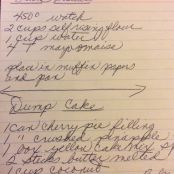 450° watch
2 cups self rising flour
1 cup water
4 T mayonnaise
place in muffin papers
and pan
Dump Cake
1 can cherry pie filling
1 " crushed pineapple
1 box yellow cake mix
2 sticks butter melted
1 cup coconut